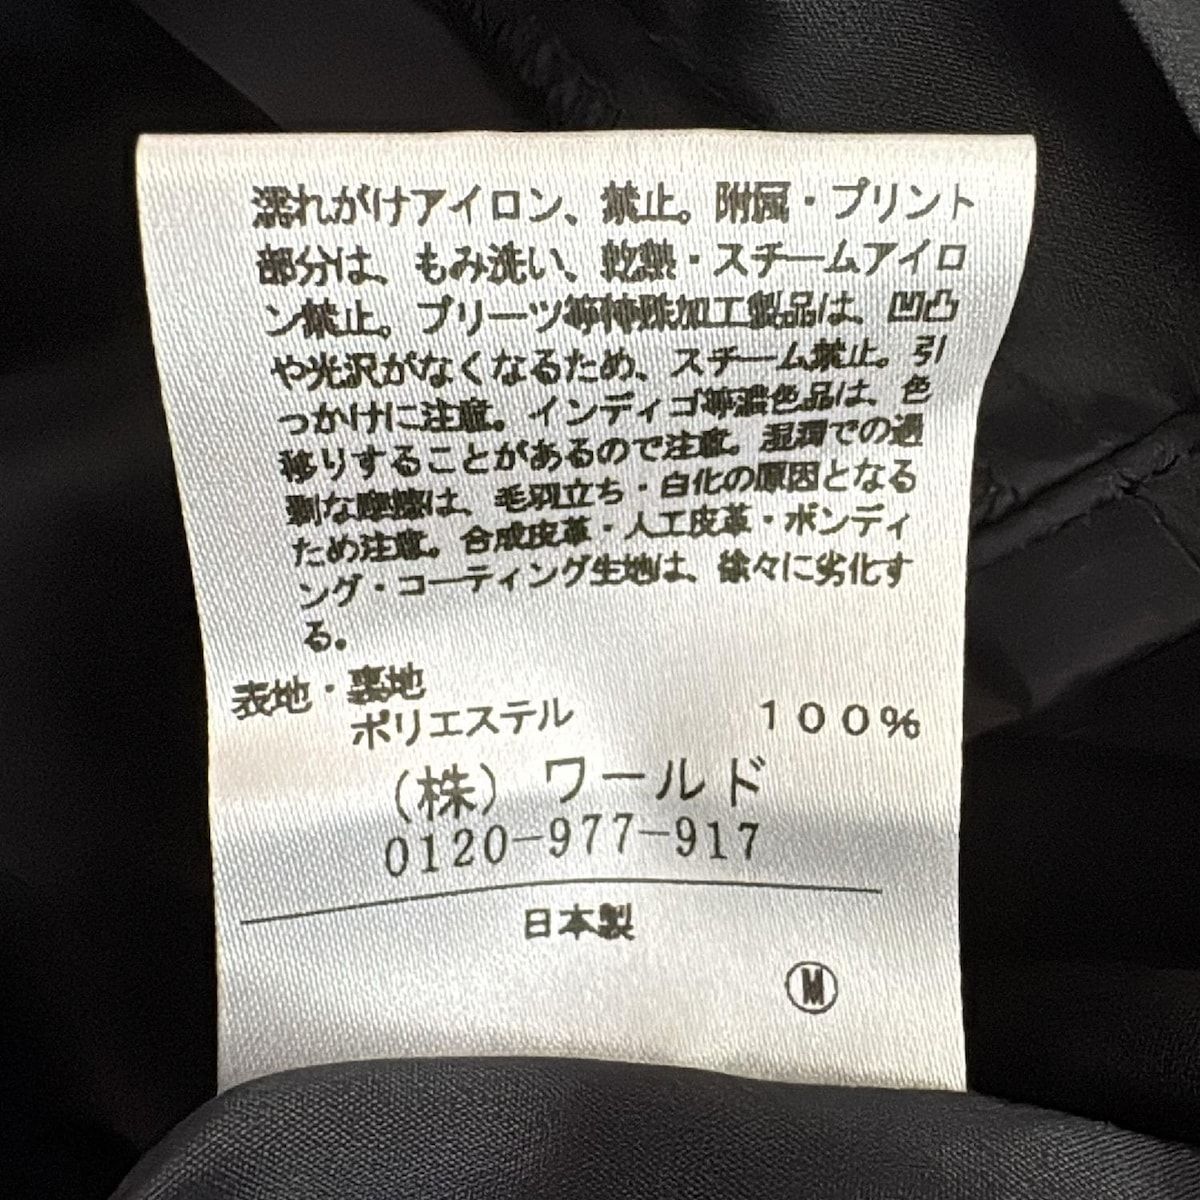 濡れがけアイロン、禁止。附属・プリント
部分は、もみ洗い、乾熱・スチームアイロ
ン禁止。プリーツ等特殊加工製品は、凹凸
や光沢がなくなるため、スチーム禁止。引
っかけに注意。インディゴ等濃色品は、色
移りすることがあるので注意。湿潤での過
剰な摩擦は、毛羽立ち・白化の原因となる
ため注意。合成皮革・人工皮革・ボンディ
ング・コーティング生地は、徐々に劣化す
る。
表地・裏地
ポリエステル 100%
(株)ワールド
0120-977-917
日本製
Ⓜ